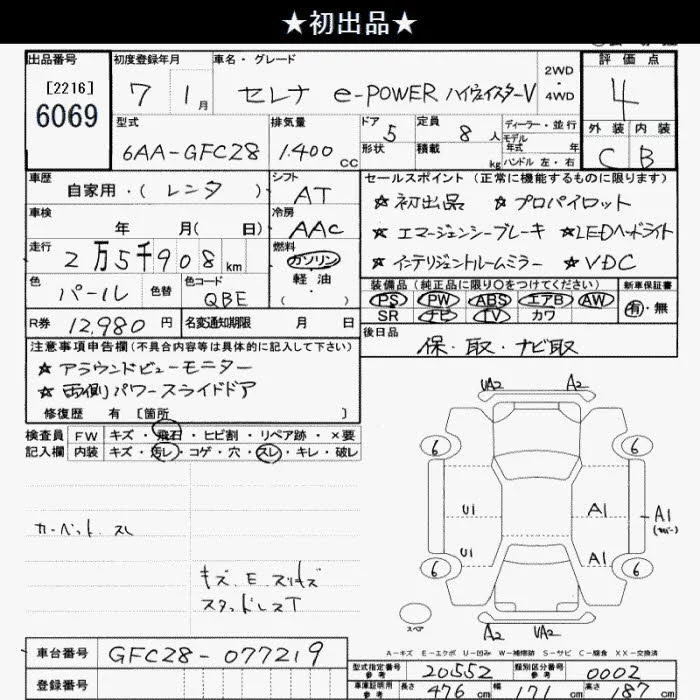 ★初出品★
出品番号
[2216]
6069
初度登録年月
7 1月
車名・グレード
セレナ e-POWER ハイウェイスターV
2WD
4WD
評価点
4
外装 内装
C B
型式
6AA-GFC28
排気量
1.400 CC
ドア
5
定員
8 人
ディーラー・並行
モデル
年式 年
形状
積載
kg
ハンドル 左・右
車歴
自家用・( レンタ )
シフト
AT
車検
年 月( 日)
冷房
AAC
走行
2万5千908 km
燃料
ガソリン
軽油
( )
色
パール
色替
色コード
QBE
R券 12,980 円
名変通知期限 月 日
セールスポイント (正常に機能するものに限ります)
★ 初出品 ★ プロパイロット
★ エマージェンシーブレーキ ★LEDヘッドライト
★ インテリジェントルームミラー ★ VDC
装備品 (純正品に限り○をつけてください)
新車保証書
PS PW ABS エアB AW
SR ナビ TV カワ
有・無
後日品
保・取・ナビ取
注意事項申告欄 (不具合内容等は具体的に記入して下さい)
★ アラウンドビューモニター
★ 両側パワースライドドア
修復歴 有 [箇所 ]
検査員 FW キズ・飛石・ヒビ割・リペア跡・×要
記入欄 内装 キズ・汚レ・コゲ・穴・スレ・キレ・破レ
カーペット スレ
キズ E スリキズ
スタッドレスT
UA2 A2
6 6
U1 A1 A1
U1 A1
6 6
スペア
A2 UA2
A-キズ E-エクボ U-凹み W-補修跡 S-サビ C-腐食 XX-交換済
車台番号 GFC28-077219
登録番号
型式指定番号
参考
20552
類別区分番号
参考
0002
車庫証明用
参考
長さ 476 cm 幅 171 cm 高さ 187 cm